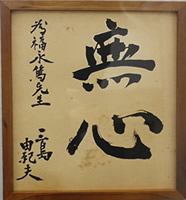 無心
為福永篤先生
三島由紀夫